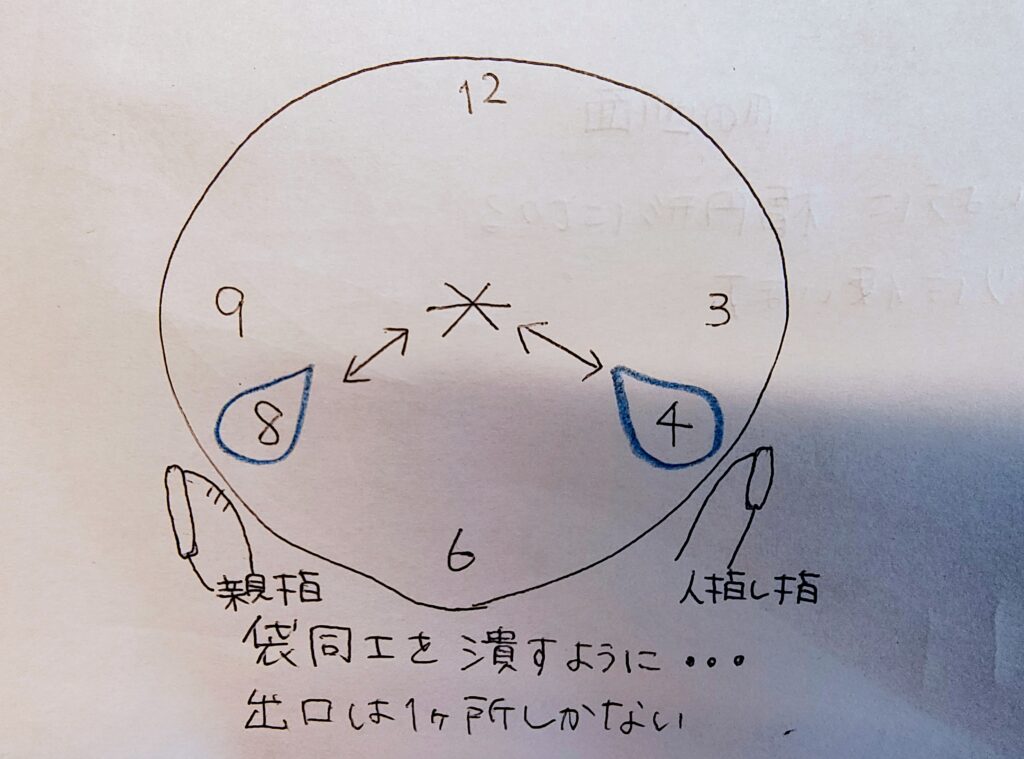 12
9 3
8 4
6
親指 人指し指
袋同工を潰すように・・・
出口は1ヶ所しかない